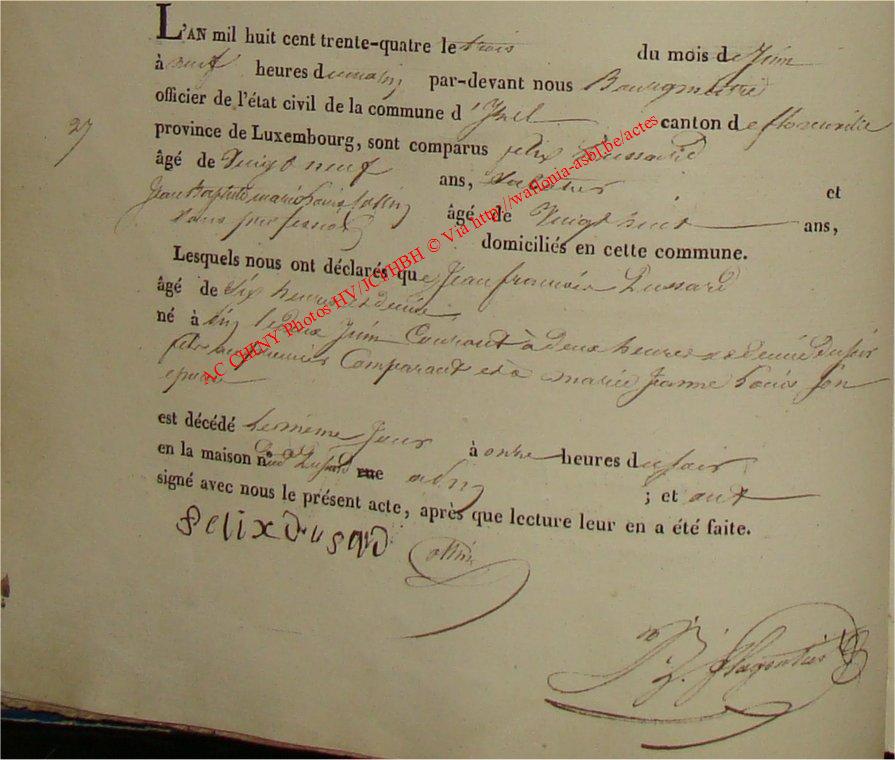 L'AN mil huit cent trente-quatre le trois du mois de Juin
à neuf heures du matin par-devant nous Bourgmestre
officier de l'état civil de la commune d'Izel canton de florenville
27
province de Luxembourg, sont comparus felix Dussard
âgé de Vingt neuf ans, et
Jean Baptiste marie Louis Collin âgé de Vingt huit ans,
sans profession domiciliés en cette commune.
Lesquels nous ont déclarés que Jean francois Dussard
âgé de Six heures et demie
né à le deux Juin Courant à deux heures et demie du soir
fils du premier Comparant et à marie Jeanne Louis son
epouse
est décédé le meme Jour à onze heures du soir
en la maison n° dud Dussard rue ; et ont
signé avec nous le présent acte, après que lecture leur en a été faite.
felix Dusard
Collin
AC CHINY Photos HV/JCl/HBH © Via http://wallonia-asbl.be/actes